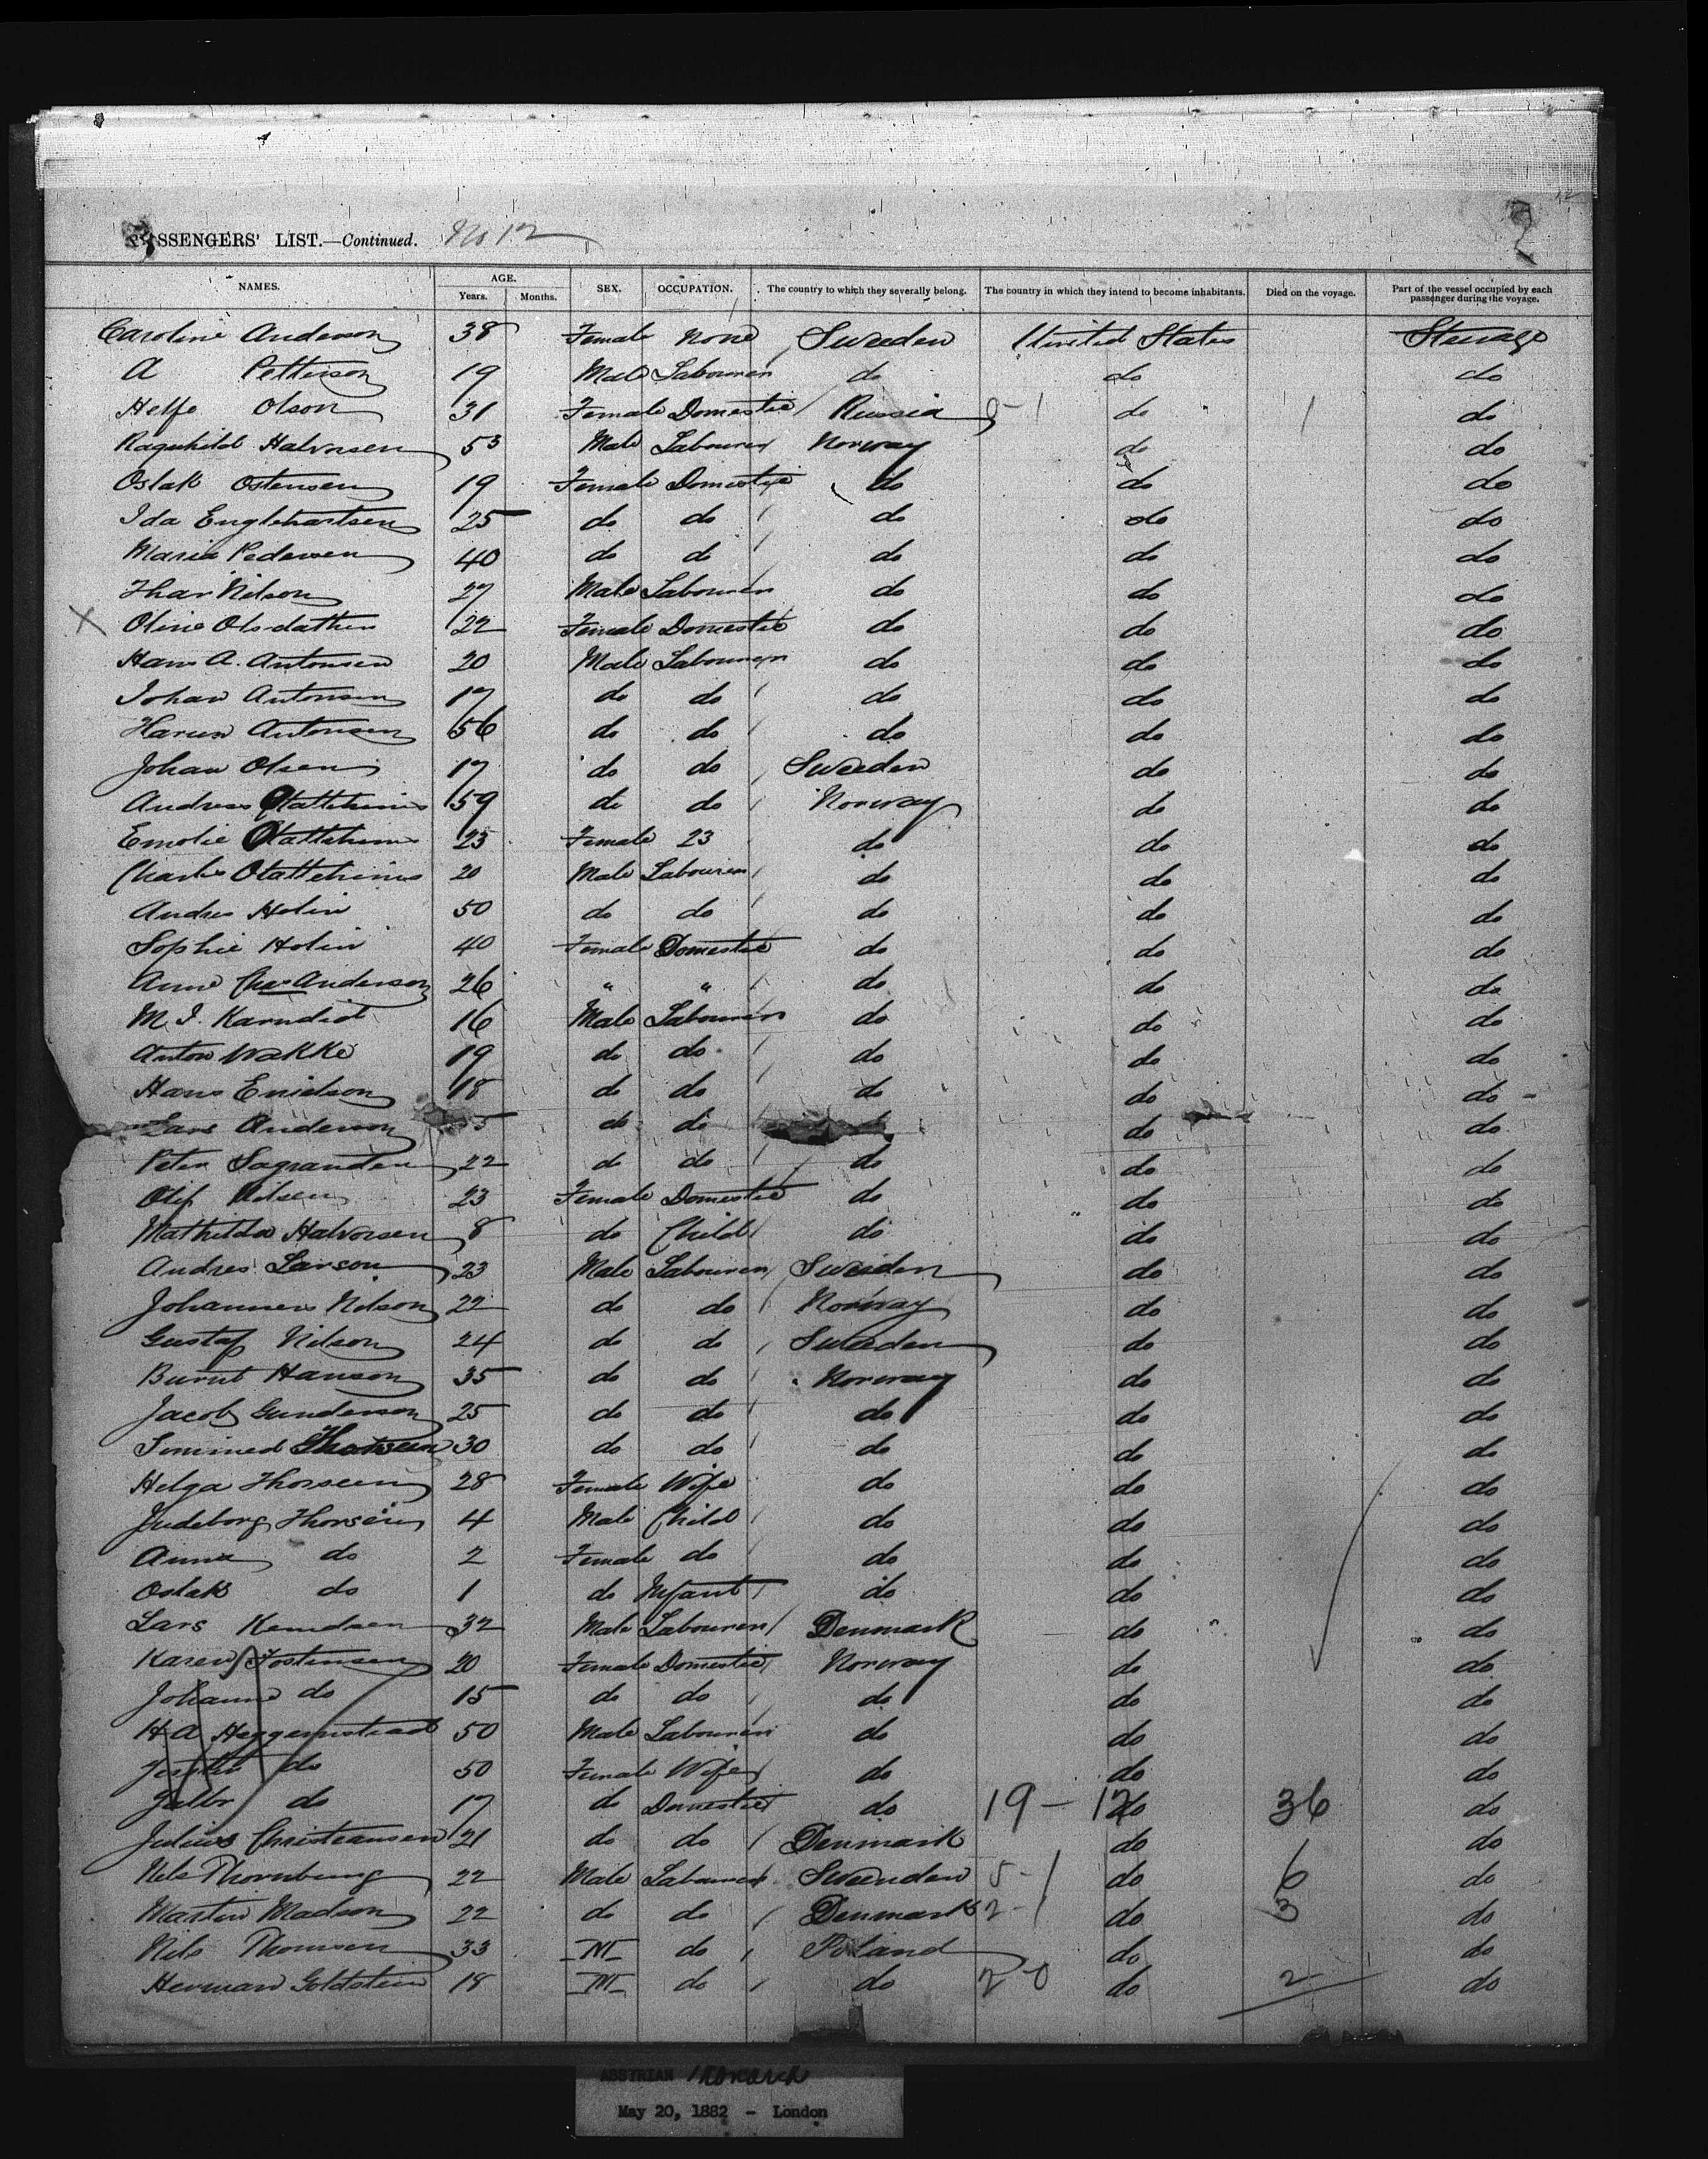 PASSENGERS' LIST.—Continued. No 12
NAMES. AGE. Years. Months. SEX. OCCUPATION. The country to which they severally belong. The country in which they intend to become inhabitants. Died on the voyage. Part of the vessel occupied by each passenger during the voyage.
Caroline Anderson 38 Female None Sweden United States Steerage
A Petterson 19 Male Labourer do do do
Helfe Olson 31 Female Domestic Russia 0-1 do 1 do
Ragnhild Halvorsen 53 Male Labourer Norway do do
Oslak Ostensen 19 Female Domestic do do do
Ida Englehartsen 25 do do do do do
Marie Pedersen 40 do do do do do
Thar Nilson 27 Male Labourer do do do
X Oline Olsdatter 22 Female Domestic do do do
Hans A. Antonsen 20 Male Labourer do do do
Johan Antonsen 17 do do do do do
Antonsen 56 do do do do do
Johan Olsen 17 do do Sweden do do
Andreas 59 do do Norway do do
Emolie 23 Female 23 do do do
Charles 20 Male Labourer do do do
Andres Holin 50 do do do do do
Sophie Holin 40 Female Domestic do do do
Anne Chas Anderson 26 " " do do do
M. I. Karndidt 16 Male Labourer do do do
Anton Wakke 19 do do do do do
Hans Enielson 18 do do do do do
Lars Anderson 5 do do do do
Peter Sagranden 22 do do do do do
Olif Nilsen 23 Female Domestic do do do
Mathilda Halvorsen 8 do Child do do do
Andres Larson 23 Male Labourer Sweden do do
Johannes Nilson 22 do do Norway do do
Gustaf Nilson 24 do do Sweden do do
Burnt Hanson 35 do do Norway do do
Jacob Gunderson 25 do do do do do
30 do do do do do
Helga Thorseen 28 Female Wife do do do
Judeborg Thorseen 4 Male Child do do do
Anna do 2 Female do do do do
Oslak do 1 do Infant do do do
Lars Kendsen 32 Male Labourer Denmark do do
Karen Tostensen 20 Female Domestic Norway do do
Johanne do 15 do do do do do
H A Heggemstead 50 Male Labourer do do do
do 50 Female Wife do do do
do 17 do Domestic do 19 - 12 do 36 do
Julius Christeansen 21 do do Denmark do do
Nils Thornburg 22 Male Labourer Sweenden 5-1 do 6 do
Martin Madson 22 do do Denmark 2-1 do 3 do
Nils Thomsen 33 M do Poland do do
Herman Goldstein 18 M do do 2-0 do 2 do
ASSYRIAN Monarch
May 20, 1882 - London